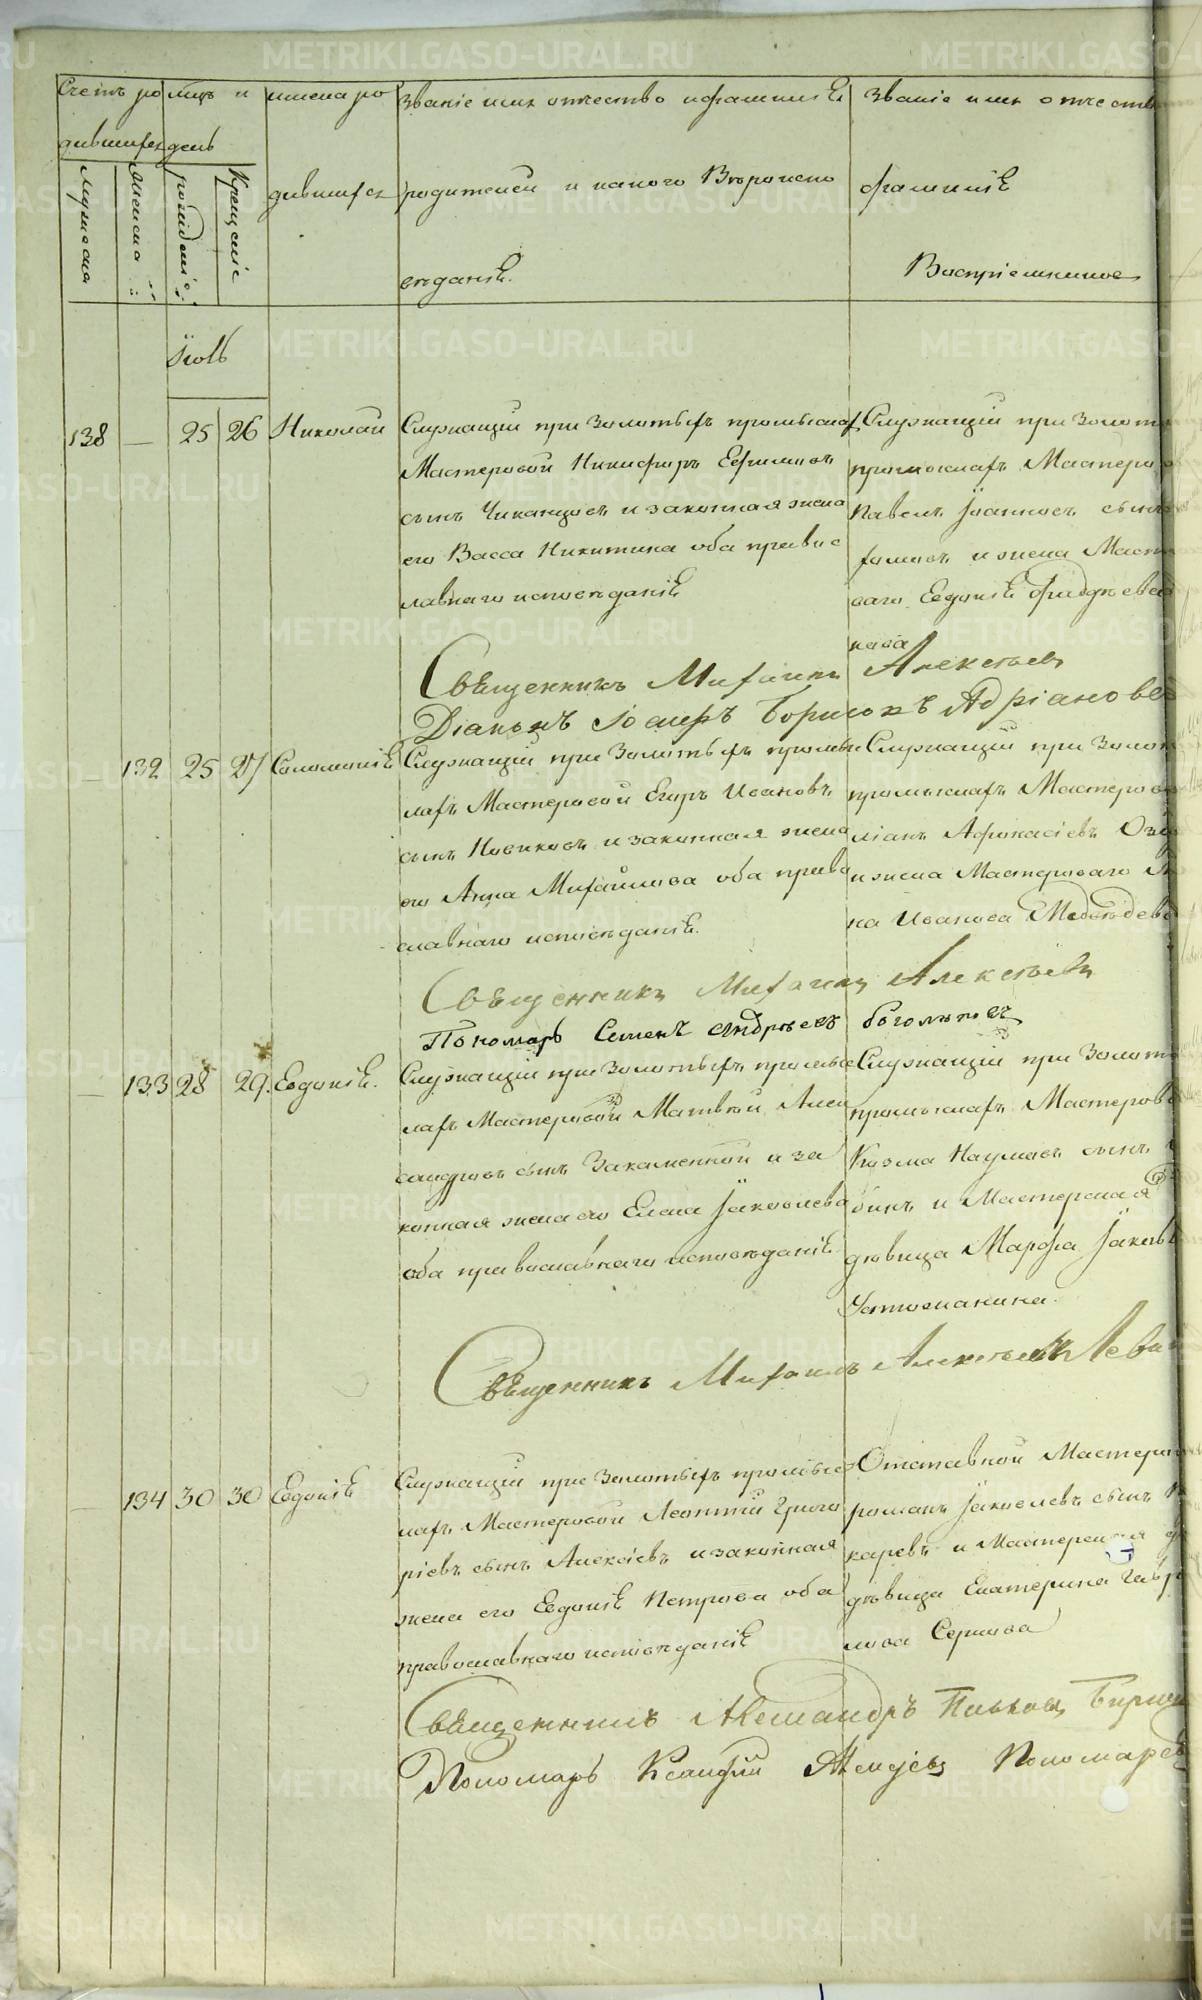 Счетъ ро
дившихся
мужеска
женска
мцъ и
день
рожденіе
Крещеніе
имена ро
дившихся
Званіе имя отчество и фамилія
родителей и какого Вероиспо
веданія.
Званіе имя отчество
фамилія
Воспріемников
Іюль
138 — 25 26 Николай
Служащій при Золотыхъ промыслах
Мастеровой Никифоръ Ефимовъ
сынъ Чиканцовъ и законная жена
его Васса Никитина оба правос
лавнаго исповеданія
Служащій при Золот
промыслахъ Мастеро
Павелъ Іоанновъ сынъ
и жена Маст
ваго Евдокія
кова
Священникъ Михаилъ Алексѣевъ
Діаконъ Іосифъ Борисовъ Адріановъ
— 132 25 27 Соломонія
Служащій при Золотыхъ промы
лахъ Мастеровой Егоръ Ивановъ
сынъ Новиковъ и законная жена
его Анна Михайлова оба право
славнаго исповеданія.
Служащій при Золот
промыслахъ Мастеров
ліанъ Афонасіевъ
и жена Мастероваго
на Иванова Медведева
Священникъ Михаилъ Алексѣевъ
Пономарь Семенъ Андреевъ Боголѣповъ
— 133 28 29. Евдокія.
Служащій при Золотыхъ промыс
лахъ Мастеровой Матвѣй Алек
сандровъ сынъ Закаменной и за
конная жена его Елена Іаковлева
оба православнаго исповеданія
Служащій при Золот
промыслахъ Мастеров
Козма Наумовъ сынъ
бинъ и Мастерская
дѣвица Марфа Іаков
Устюжанина.
Священникъ Михаилъ Алексѣевъ
— 134 30 30 Евдокія
Служащій при Золотыхъ промыс
лахъ Мастеровой Леонтій Григо
ріевъ сынъ Алексіевъ и законная
жена его Евдокія Петрова оба
православнаго исповеданія
Отставной Мастеро
романъ Іаковлевъ сынъ
каревъ и Мастерская
дѣвица Екатерина Гавр
лова Серкова
Священникъ Александръ Поповъ
Пономарь Пономарев
METRIKI.GASO-URAL.RU